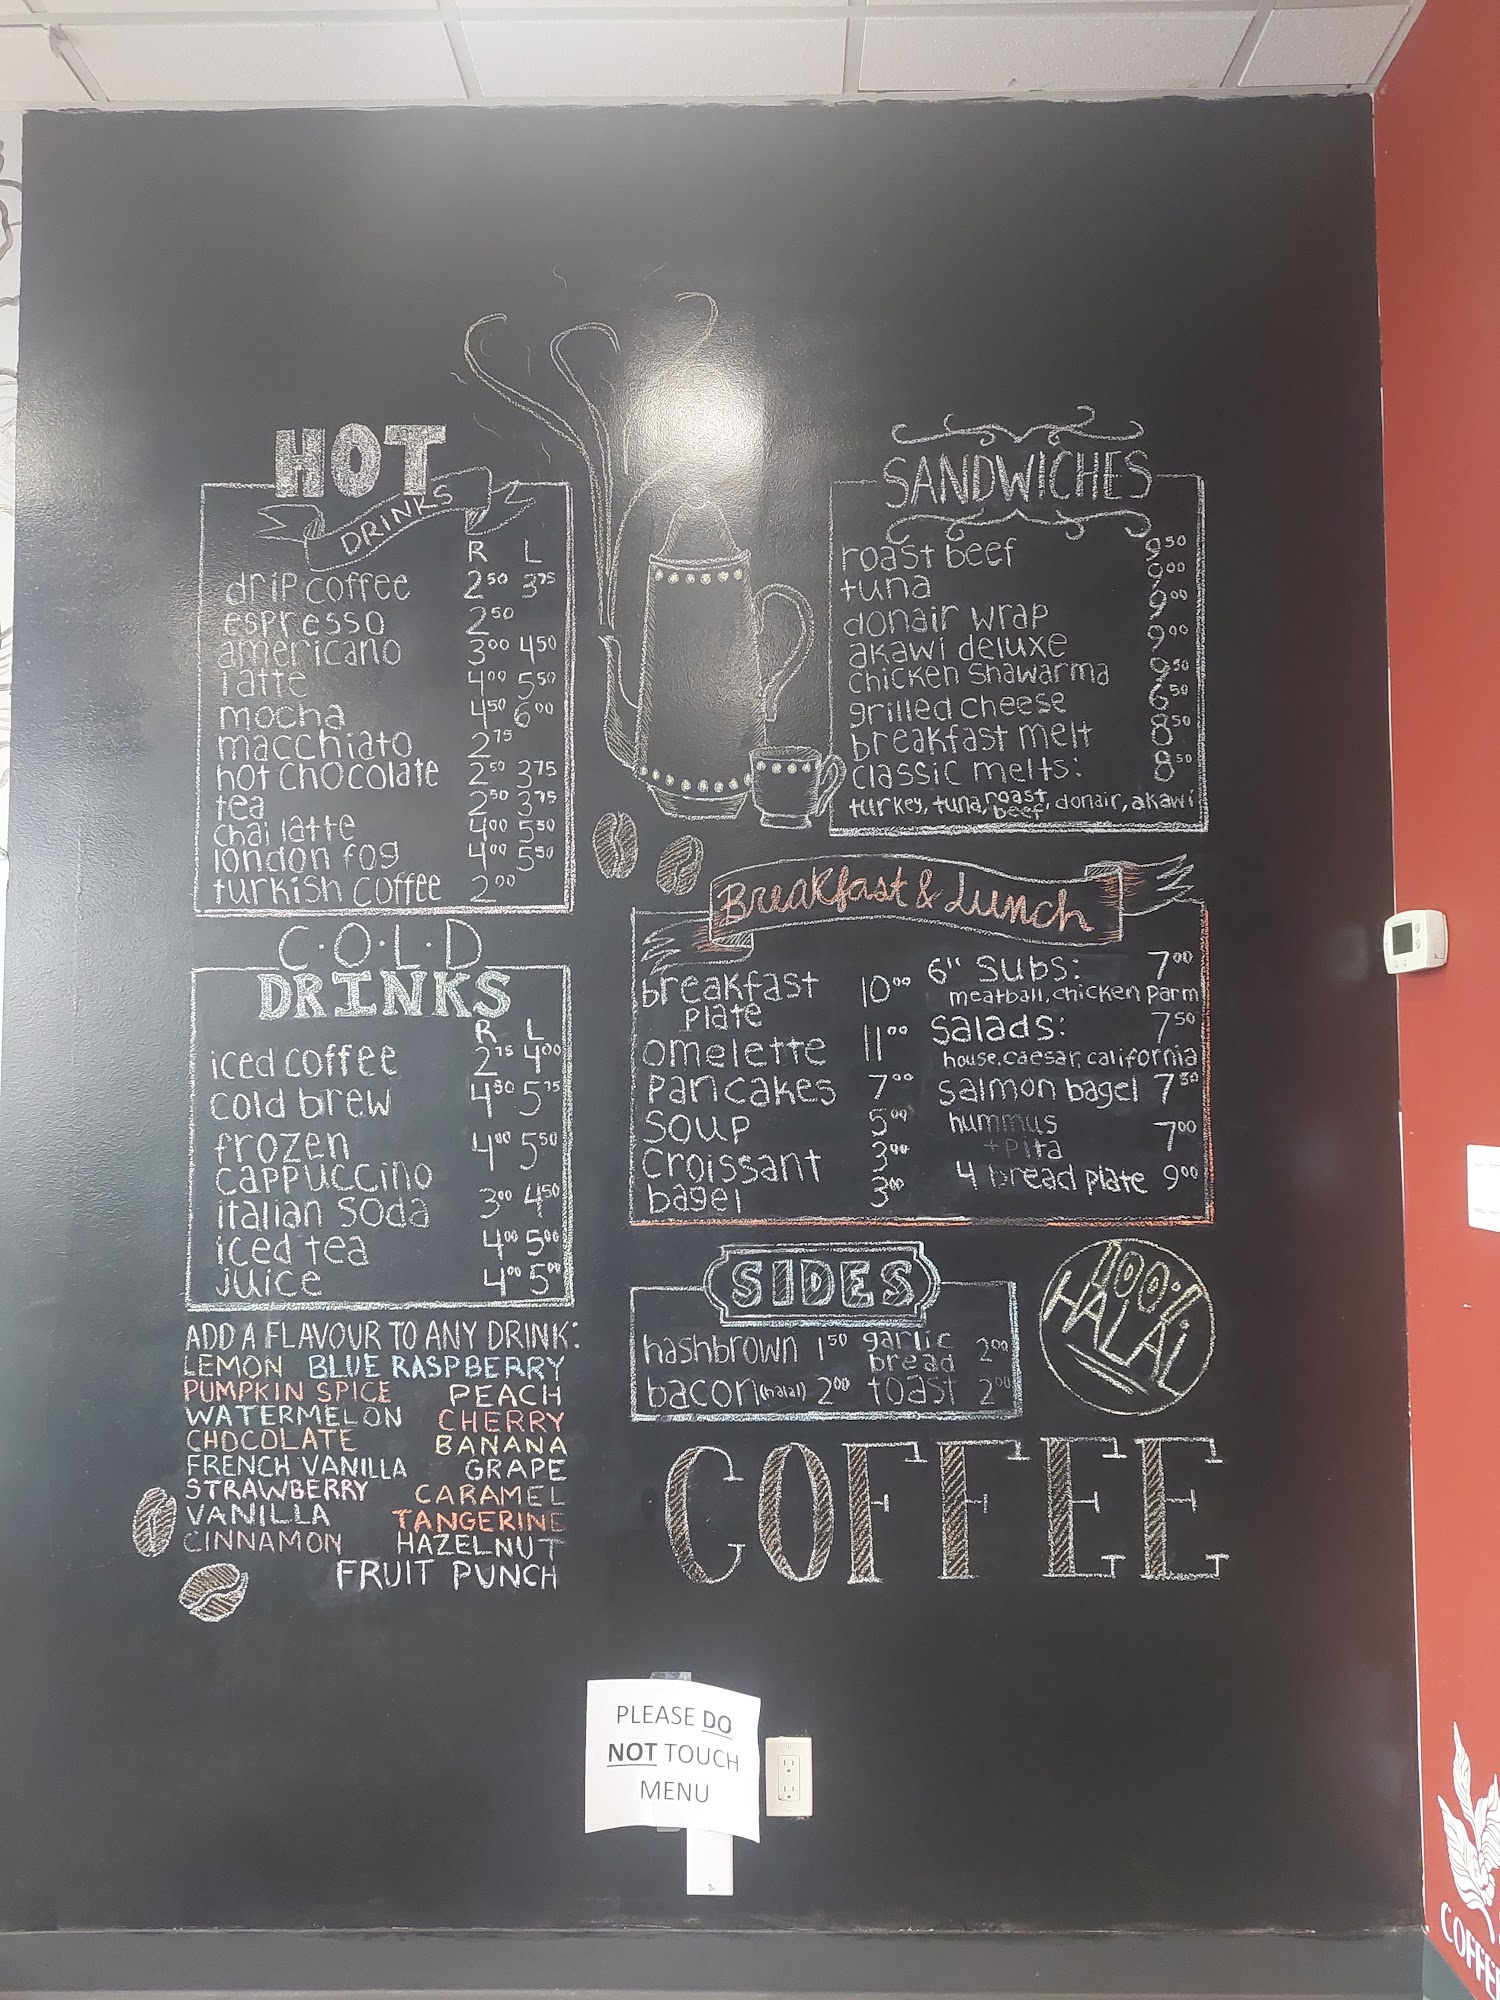 HOT
DRINKS
R L
drip coffee 2 50 3 75
espresso 2 50
americano 3 00 4 50
latte 4 00 5 50
mocha 4 50 6 00
macchiato 2 75
hot chocolate 2 50 3 75
tea 2 50 3 75
chai latte 4 00 5 50
london fog 4 00 5 50
turkish coffee 2 00
C·O·L·D
DRINKS
R L
iced coffee 2 75 4 00
cold brew 4 50 5 75
frozen 4 00 5 50
cappuccino
italian soda 3 00 4 50
iced tea 4 00 5 00
juice 4 00 5 00
ADD A FLAVOUR TO ANY DRINK:
LEMON BLUE RASPBERRY
PUMPKIN SPICE PEACH
WATERMELON CHERRY
CHOCOLATE BANANA
FRENCH VANILLA GRAPE
STRAWBERRY CARAMEL
VANILLA TANGERINE
CINNAMON HAZELNUT
FRUIT PUNCH
SANDWICHES
roast beef 9 50
tuna 9 00
donair wrap 9 00
akawi deluxe 9 00
chicken shawarma 9 50
grilled cheese 6 50
breakfast melt 8 50
classic melts: 8 50
turkey, tuna, roast beef, donair, akawi
Breakfast & Lunch
breakfast 10 00
plate
omelette 11 00
pancakes 7 00
soup 5 00
croissant 3 00
bagel 3 00
6" subs: 7 00
meatball, chicken parm
salads: 7 50
house, caesar, california
salmon bagel 7 50
hummus 7 00
+ pita
4 bread plate 9 00
SIDES
hashbrown 1 50 garlic 2 00
bread
bacon (halal) 2 00 toast 2 00
100%
HALAL
COFFEE
PLEASE DO
NOT TOUCH
MENU